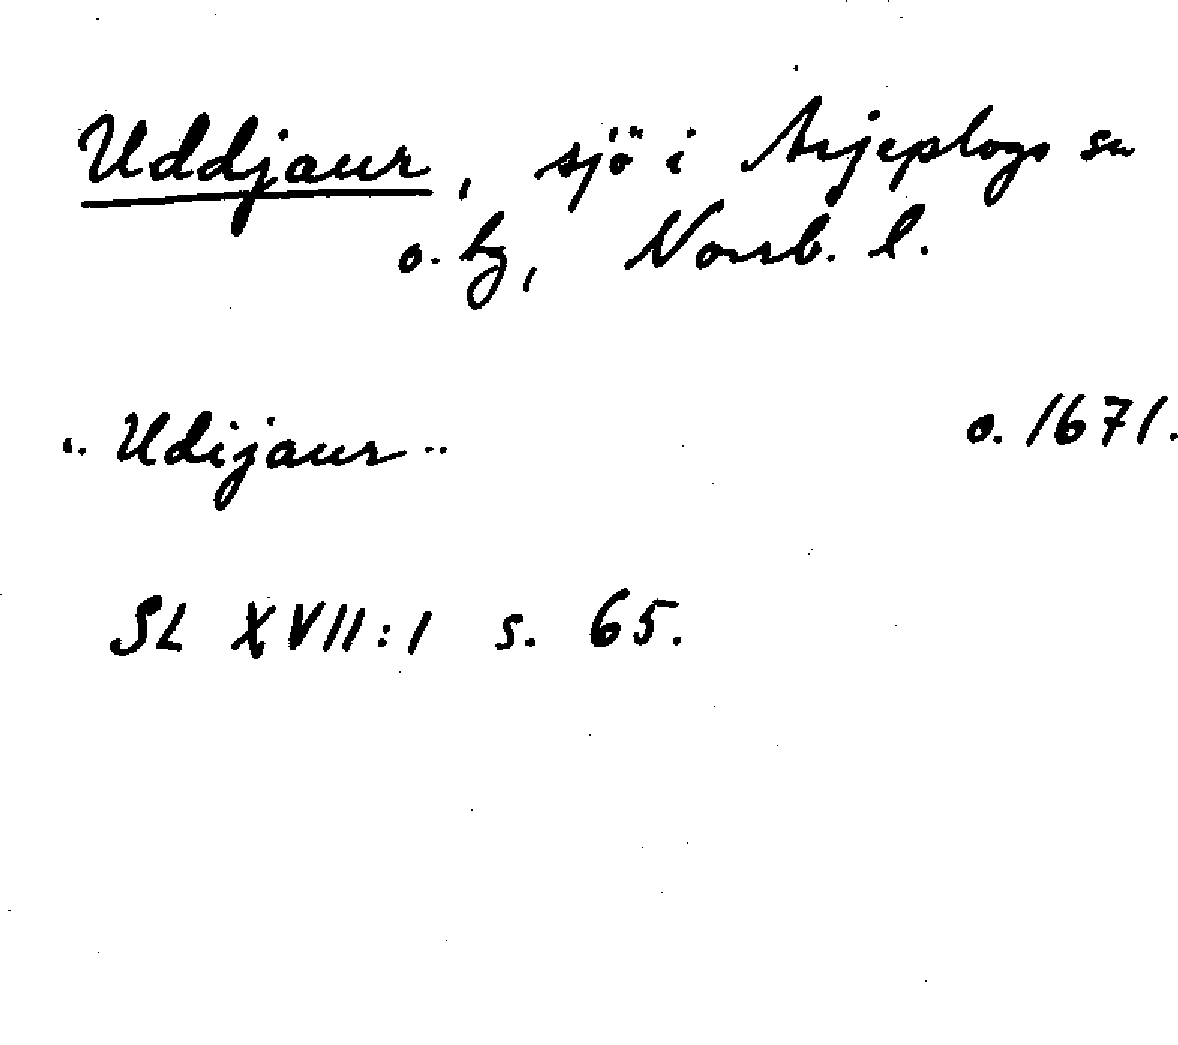 Uddjaur, sjö i Arjeplogs sn
o. hg, Norrb. l.
"Udijaur" o. 1671.
SL XVII:1 s. 65.